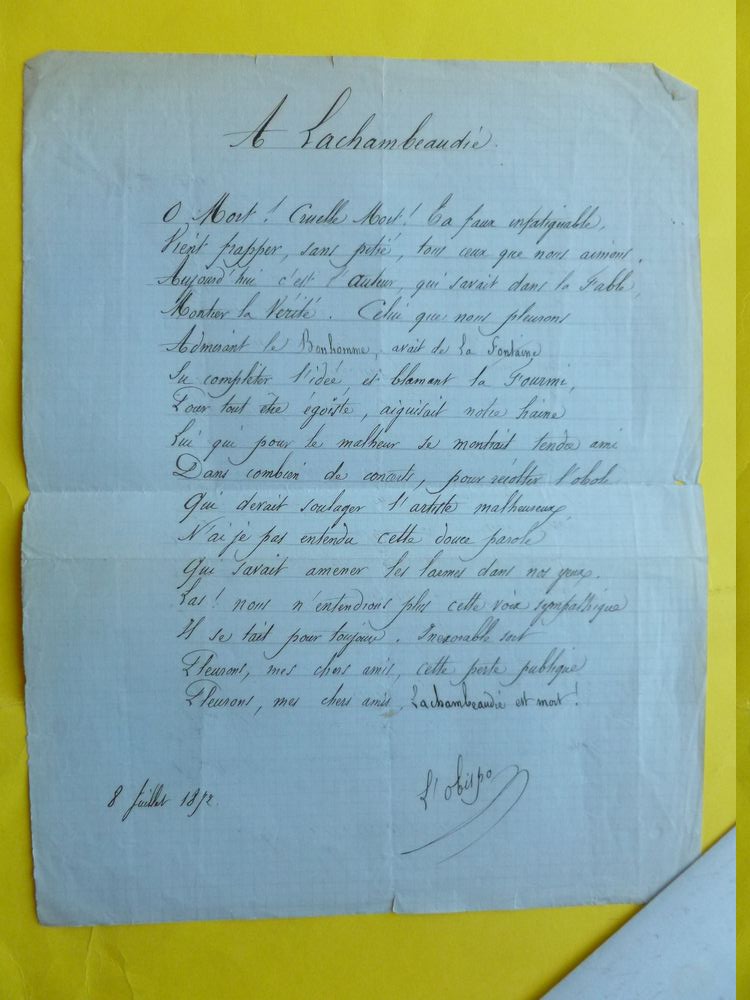 A Lachambeaudie.
O Mort! Cruelle Mort! Ta faux infatigable,
Vient frapper, sans pitié, tous ceux que nous aimons.
Aujourd'hui c'est l'auteur, qui savait dans la Fable,
Montrer la Vérité. Celui que nous pleurons
Admirant le Bonhomme, avait de La Fontaine
Su compléter l'idée, et blamant la Fourmi,
Pour tout être égoïste, aiguisait notre haine
Lui qui pour le malheur se montrait tendre ami
Dans combien de concerts, pour récolter l'obole
Qui devait soulager l'artiste malheureux,
N'ai je pas entendu cette douce parole
Qui savait amener les larmes dans nos yeux.
Las! nous n'entendrons plus cette voix sympathique
Il se tait pour toujours. Inexorable sort
Pleurons, mes chers amis, cette perte publique
Pleurons, mes chers amis, Lachambeaudie est mort!
8 Juillet 1872.
L'Obispo